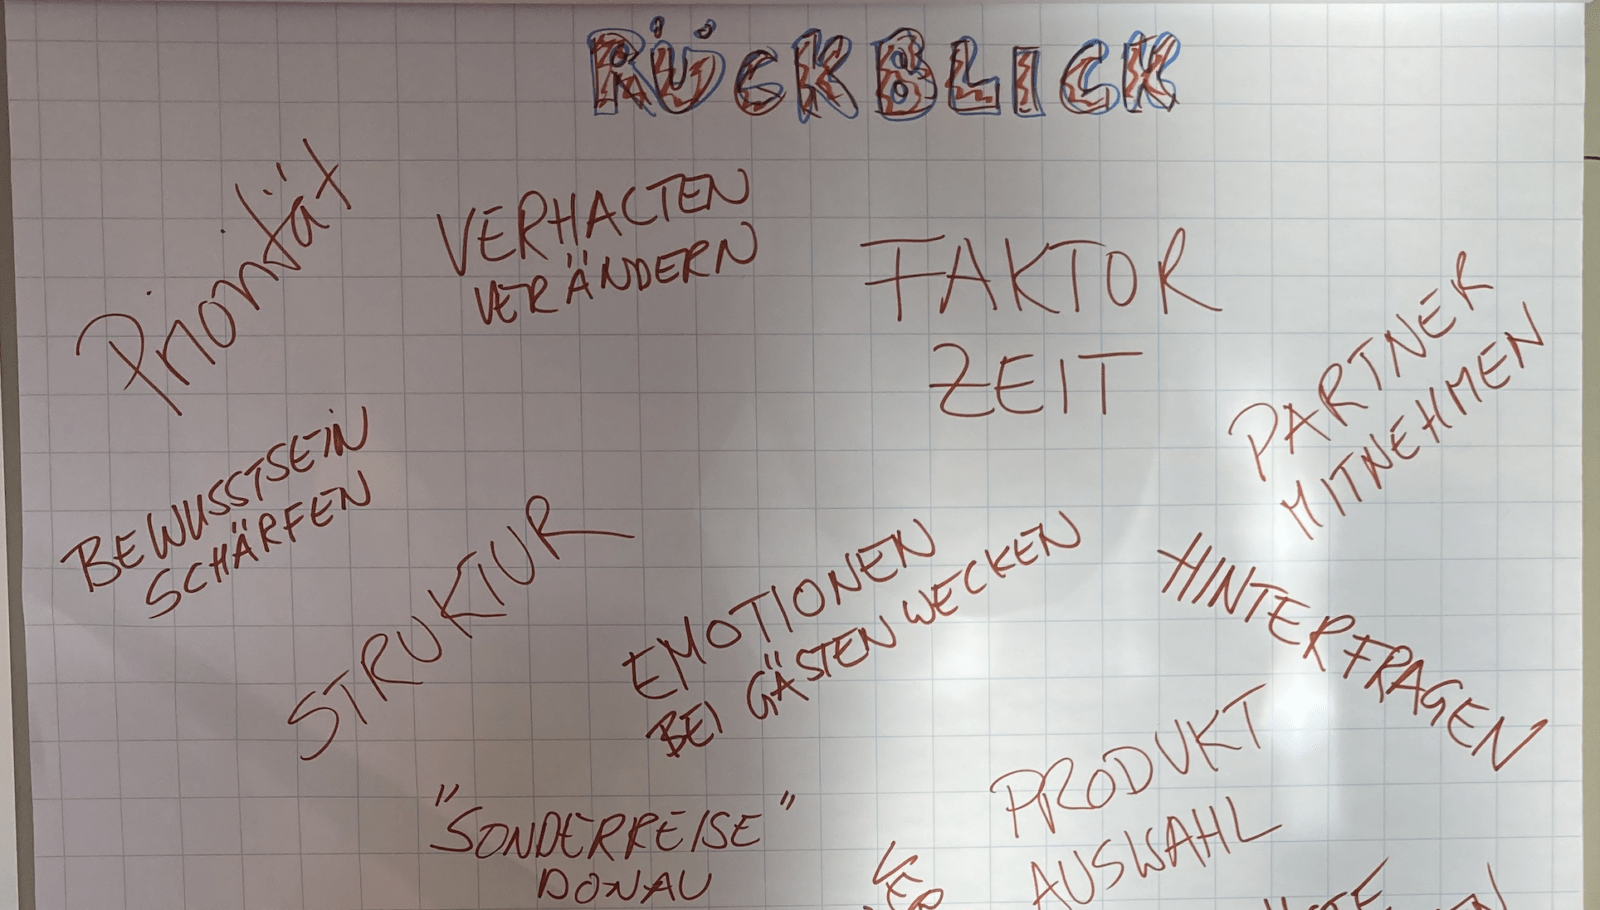 RÜCKBLICK
Priorität
VERHALTEN
VERÄNDERN
FAKTOR
ZEIT
PARTNER
MITNEHMEN
BEWUSSTSEIN
SCHÄRFEN
STRUKTUR
EMOTIONEN
BEI GÄSTEN WECKEN
HINTERFRAGEN
PRODUKT
AUSWAHL
"SONDERREISE"
DONAU